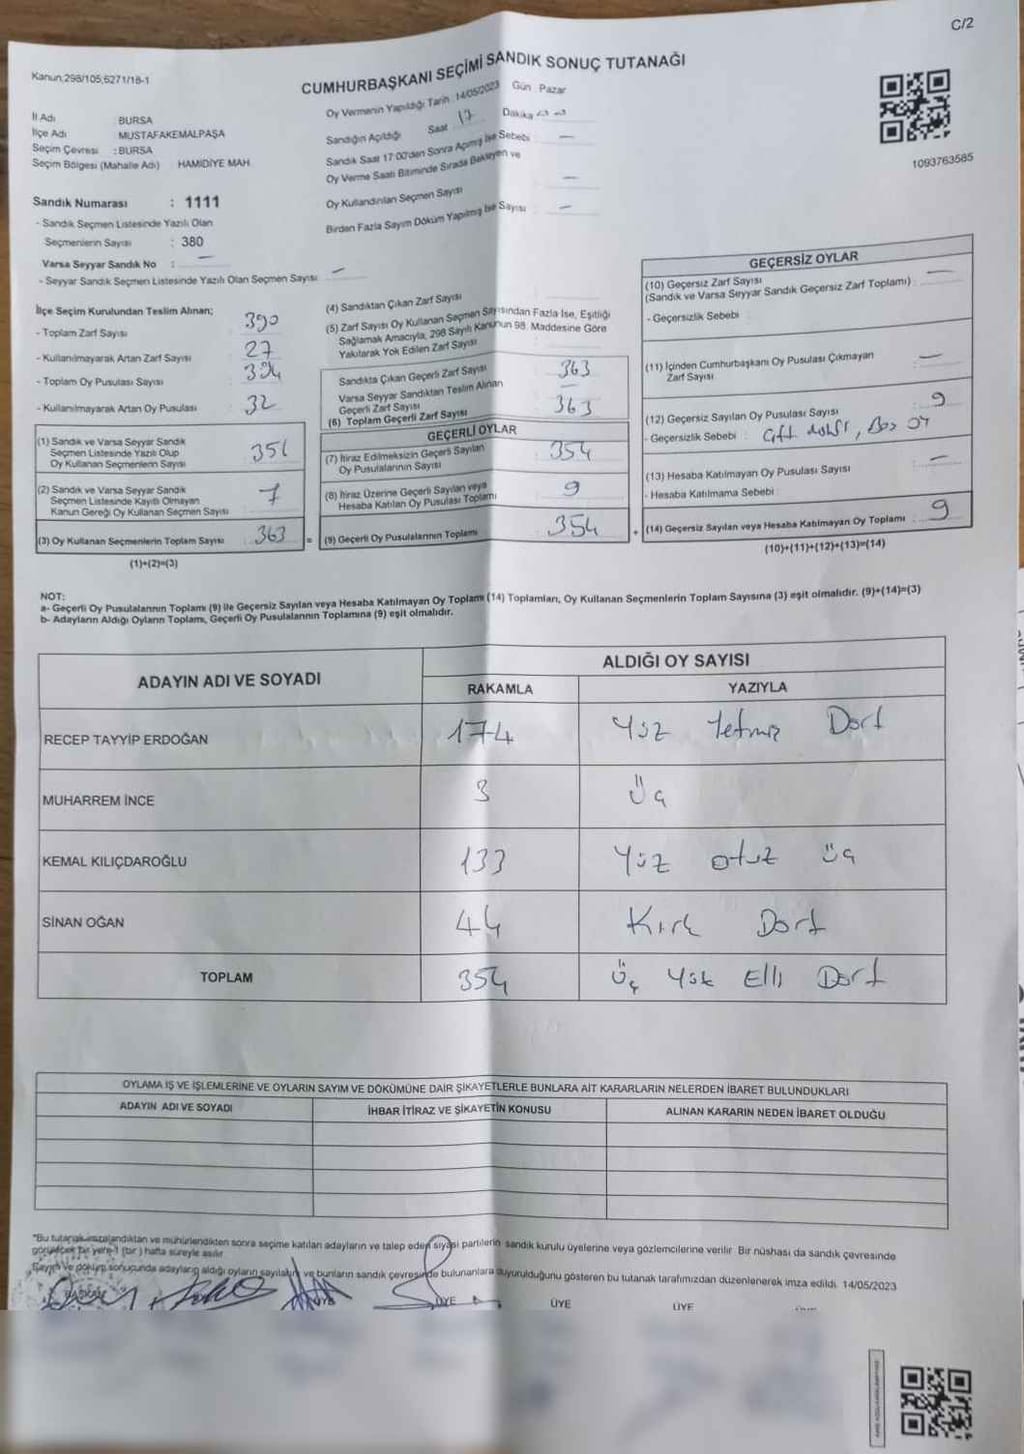 C/2
Kanun,298/105;6271/18-1
CUMHURBAŞKANI SEÇİMİ SANDIK SONUÇ TUTANAĞI
İl Adı BURSA
İlçe Adı MUSTAFAKEMALPAŞA
Seçim Çevresi : BURSA
Seçim Bölgesi (Mahalle Adı) : HAMİDİYE MAH.
Oy Vermenin Yapıldığı Tarih 14/05/2023 Gün Pazar
Sandığın Açıldığı Saat 17 Dakika
Sandık Saat 17:00'den Sonra Açılmış İse Sebebi —
Oy Verme Saati Bitiminde Sırada Bekleyen ve
Oy Kullandırılan Seçmen Sayısı —
Birden Fazla Sayım Döküm Yapılmış İse Sayısı —
1093763585
Sandık Numarası : 1111
- Sandık Seçmen Listesinde Yazılı Olan
Seçmenlerin Sayısı : 380
Varsa Seyyar Sandık No : —
- Seyyar Sandık Seçmen Listesinde Yazılı Olan Seçmen Sayısı —
İlçe Seçim Kurulundan Teslim Alınan;
- Toplam Zarf Sayısı 390
- Kullanılmayarak Artan Zarf Sayısı 27
- Toplam Oy Pusulası Sayısı
- Kullanılmayarak Artan Oy Pusulası 32
(1) Sandık ve Varsa Seyyar Sandık
Seçmen Listesinde Yazılı Olup
Oy Kullanan Seçmenlerin Sayısı
(2) Sandık ve Varsa Seyyar Sandık
Seçmen Listesinde Kayıtlı Olmayan
Kanun Gereği Oy Kullanan Seçmen Sayısı 7
(3) Oy Kullanan Seçmenlerin Toplam Sayısı 363 =
(1)+(2)=(3)
(4) Sandıktan Çıkan Zarf Sayısı
(5) Zarf Sayısı Oy Kullanan Seçmen Sayısından Fazla İse, Eşitliği
Sağlamak Amacıyla, 298 Sayılı Kanunun 98. Maddesine Göre
Yakılarak Yok Edilen Zarf Sayısı
Sandıkta Çıkan Geçerli Zarf Sayısı 363
Varsa Seyyar Sandıktan Teslim Alınan
Geçerli Zarf Sayısı —
(6) Toplam Geçerli Zarf Sayısı 363
GEÇERLİ OYLAR
(7) İtiraz Edilmeksizin Geçerli Sayılan
Oy Pusulalarının Sayısı 354
(8) İtiraz Üzerine Geçerli Sayılan veya
Hesaba Katılan Oy Pusulası Toplamı 9
(9) Geçerli Oy Pusulalarının Toplamı 354 +
GEÇERSİZ OYLAR
(10) Geçersiz Zarf Sayısı —
(Sandık ve Varsa Seyyar Sandık Geçersiz Zarf Toplamı)
- Geçersizlik Sebebi
(11) İçinden Cumhurbaşkanı Oy Pusulası Çıkmayan —
Zarf Sayısı
(12) Geçersiz Sayılan Oy Pusulası Sayısı 9
- Geçersizlik Sebebi : Boş oy
(13) Hesaba Katılmayan Oy Pusulası Sayısı —
- Hesaba Katılmama Sebebi :
(14) Geçersiz Sayılan veya Hesaba Katılmayan Oy Toplamı 9
(10)+(11)+(12)+(13)=(14)
NOT:
a- Geçerli Oy Pusulalarının Toplamı (9) ile Geçersiz Sayılan veya Hesaba Katılmayan Oy Toplamı (14) Toplamları, Oy Kullanan Seçmenlerin Toplam Sayısına (3) eşit olmalıdır. (9)+(14)=(3)
b- Adayların Aldığı Oyların Toplamı, Geçerli Oy Pusulalarının Toplamına (9) eşit olmalıdır.
ADAYIN ADI VE SOYADI ALDIĞI OY SAYISI
RAKAMLA YAZIYLA
RECEP TAYYİP ERDOĞAN 174 Yüz Yetmiş Dört
MUHARREM İNCE 3 Üç
KEMAL KILIÇDAROĞLU 133 Yüz otuz üç
SİNAN OĞAN 44 Kırk Dört
TOPLAM 354 Üç Yüz Elli Dört
OYLAMA İŞ VE İŞLEMLERİNE VE OYLARIN SAYIM VE DÖKÜMÜNE DAİR ŞİKAYETLERLE BUNLARA AİT KARARLARIN NELERDEN İBARET BULUNDUKLARI
ADAYIN ADI VE SOYADI İHBAR İTİRAZ VE ŞİKAYETİN KONUSU ALINAN KARARIN NEDEN İBARET OLDUĞU
"Bu tutanak imzalandıktan ve mühürlendikten sonra seçime katılan adayların ve talep eden siyasi partilerin sandık kurulu üyelerine veya gözlemcilerine verilir. Bir nüshası da sandık çevresinde
görülecek bir yere 1 (bir) hafta süreyle asılır.
Sayım ve döküm sonucunda adayların aldığı oyların sayıları ve bunların sandık çevresinde bulunanlara duyurulduğunu gösteren bu tutanak tarafımızdan düzenlenerek imza edildi. 14/05/2023
BAŞKAN ÜYE ÜYE ÜYE ÜYE